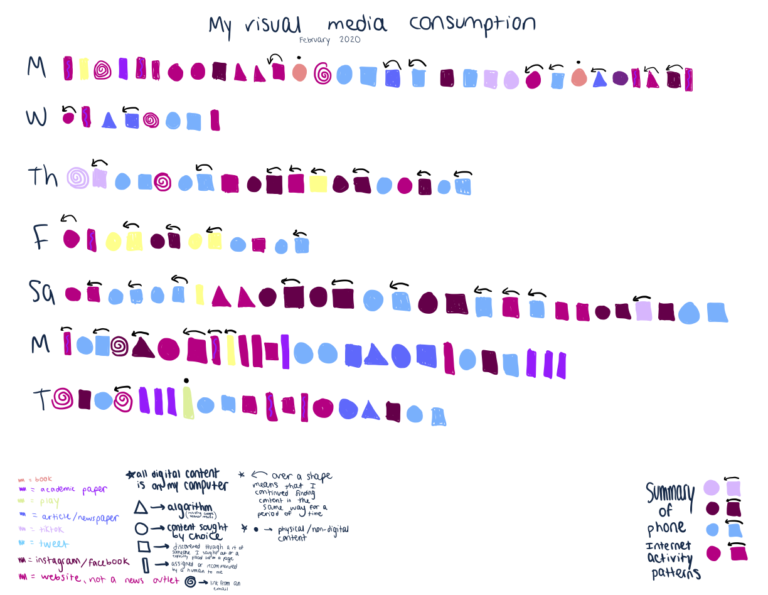 My visual media consumption
February 2020
M
W
Th
F
Sa
M
T
= book
= academic paper
= play
= article/newspaper
= tiktok
= tweet
= instagram/facebook
= website, not a news outlet
all digital content
is on my computer
algorithm
content sought
by choice
assigned or recommended
by a human to me
link from an
email
over a shape
means that I
continued finding
content in the
same way for a
period of time
physical/non-digital
content
Summary
of
phone
Internet
activity
patterns